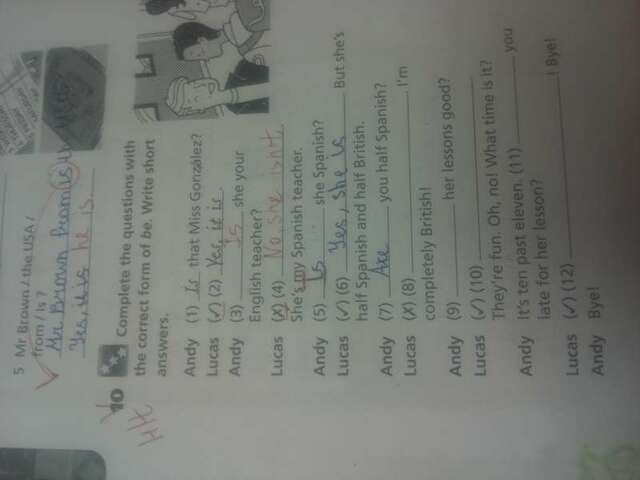 5 Mr Brown / the USA /
from / is ?
Mr Brown from is
Yes, it is he is.
10 Complete the questions with
the correct form of be. Write short
answers.
HH
Andy (1) Is that Miss González?
Lucas (✓) (2) Yes, it is.
Andy (3) is she your
English teacher?
Lucas (X) (4) No, she isn't.
She's my Spanish teacher.
Andy (5) Is she Spanish?
Lucas (✓) (6) Yes, she is But she's
half Spanish and half British.
Andy (7) Are you half Spanish?
Lucas (X) (8) . I'm
completely British!
Andy (9) her lessons good?
Lucas (✓) (10)
They're fun. Oh, no! What time is it?
Andy It's ten past eleven. (11) you
late for her lesson?
Lucas (✓) (12) ! Bye!
Andy Bye!